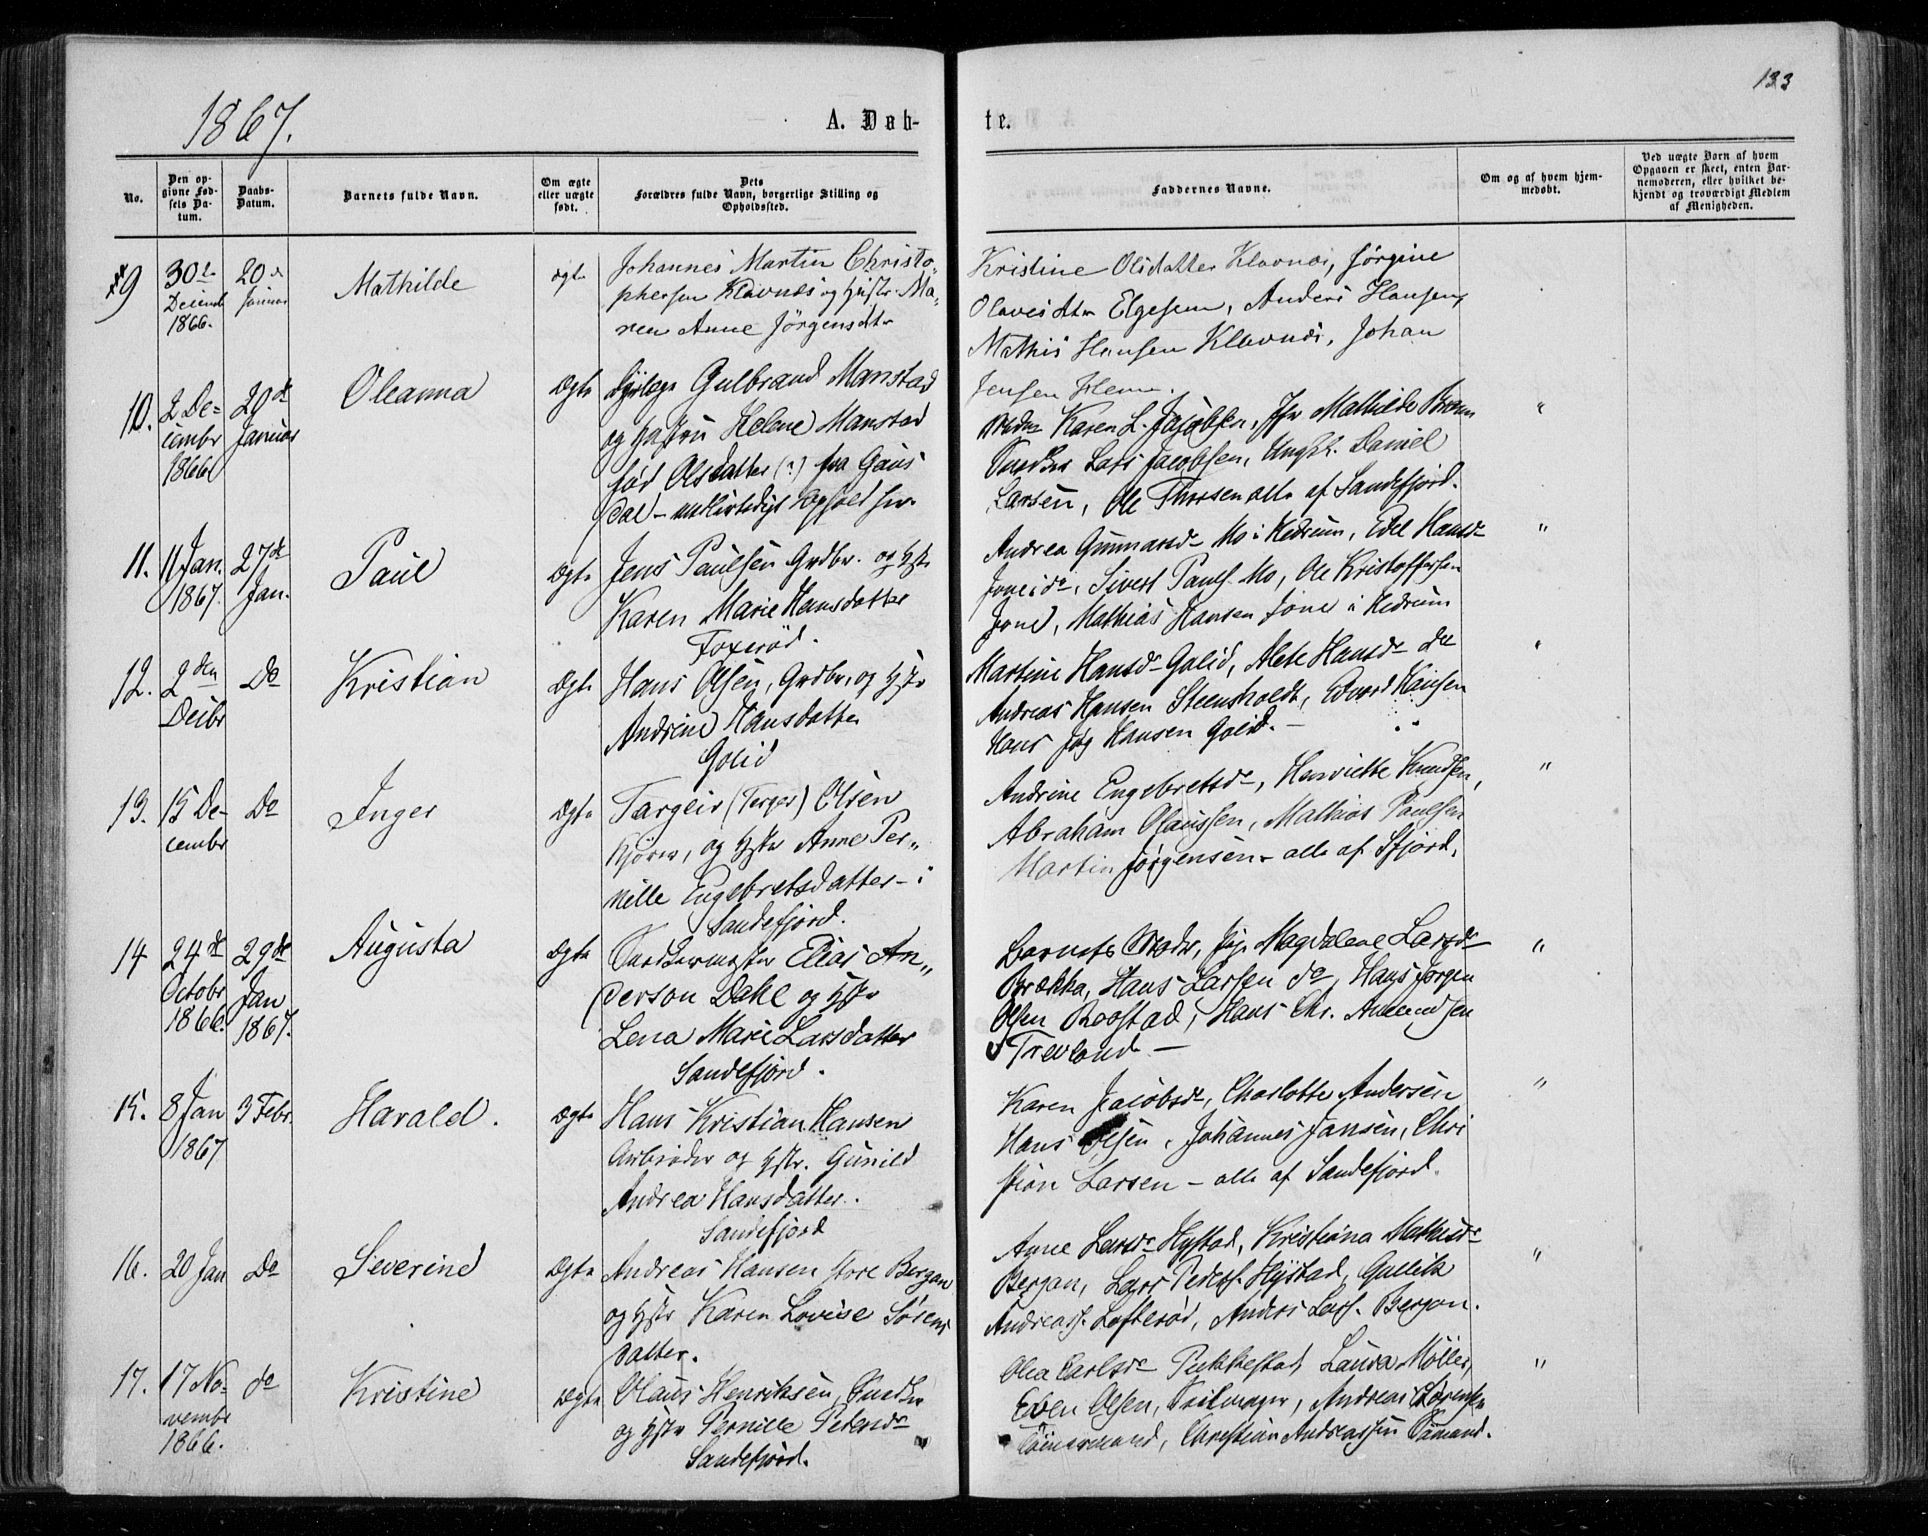 133
1867.
A. Døb-
te.
No.
Den op-
givne Fød-
sels Da-
tum.
Daabs-
Datum.
Barnets fulde Navn.
Om ægte
eller uægte
født.
Dets
Forældres fulde Navn, borgerlige Stilling og
Opholdssted.
Faddernes Navne.
Om og af hvem hjem-
medøbt.
Ved uægte Børn af hvem
Opgaven er skeet, enten Bar-
nemoderen, eller hvilket be-
kjendt og troværdigt Medlem
af Menigheden.
9
30te
Decemb
1866.
20de
Januar
Mathilde
ægte
Johannes Martin Christo-
phersen Klavnæs og Hustr. Ma-
ren Anne Jörgensdtr
Kristine Olsdatter Klavnæs, Jörgine
Olavesdtr Elgesem, Anders Hansen,
Mathis Hansen Klavnæs, Johan
Jensen Hem.
10.
2 De-
cembr
1866
29de
Januar
Oleanna
Ægte
Gulbrand Manstad
og Hustru Helene Manstad
født Olsdatter (?) fra Gaus
dal – Ophold her.
Karen L. Jacobsen, Jfr Mathilde
Snedker Lars Jacobsen, Ungk. Daniel
Larsen, Ole Thorsen alle af Sandefjord.
"
11.
11 Jan.
1867.
27de
Jan.
Paul
Ægte
Jens Paulsen Grdbr. og Hstr
Karen Marie Hansdatter
Foxerød.
Andrea Gunnarsdr Mo i Hedrum, Edel Hansdr
Sivert Pauls. Mo, Ole Kristoffersen
Mathias Hansen i Hedrum
"
12.
2den
Decbr
Do
Kristian
Ægte
Hans Olsen, Grdbr, og Hstr
Andrine Hansdatter
Golid
Martine Hansdr Golid, Alete Hansdr do
Andreas Hansen Steensholdt, Edvard Hansen
Hans Jør Hansen Golid. –
"
13.
15 De-
cembr
Do
Inger
Ægte
Targeir (Terger) Olsen
og Hstr Anne Per-
nille Engebretsdatter – i
Sandefjord.
Andrine Engebretsdr, Henriette Knudsen,
Abraham Olaussen, Mathias Paulsen
Martin Jørgensen – alle af Sfjord.
"
14
24de
Octobr
1866.
29de
Jan
1867.
Augusta
Ægte
Snedkermester Elias An-
derson Dahl og Hstr
Lena Marie Larsdatter
Sandefjord.
Barnets Moder, Magdalene Larsdr
Brække, Hans Larsen do, Hans Jørgen
Olsen Roostad, Hans Chr. Amundsen
Trevland –
"
15.
8 Jan
1867
3 Febr.
Harald.
Ægte
Hans Kristian Hansen
Arbeider og Hstr. Gunild
Andrea Hansdatter.
Sandefjord
Karen Jacobsdr, Charlotte Andersen
Hans Olsen, Johannes Jansen, Chri
stian Larsen – alle af Sandefjord.
"
16.
20 Jan
Do
Severine
Ægte
Andreas Hansen store Bergan
og Hstr Karen Lovise Sørens
datter.
Anne Larsdr Hystad, Kristiana Mathisdr
Bergan, Lars Peders. Hystad, Gullik
Andreass. Lofterød, Anders Lars. Bergan.
"
17.
17 No-
vembr
1866.
do
Kristine
Ægte
Olaus Henriksen, Snedker
og Hstr Pernille Petersdr
Sandefjord.
Olea Carlsdr Pukkestad, Laura Møller,
Even Olsen, Seilmager, Andreas Lorentsen
Tømmermand, Christian Andreassen Sømand.
"